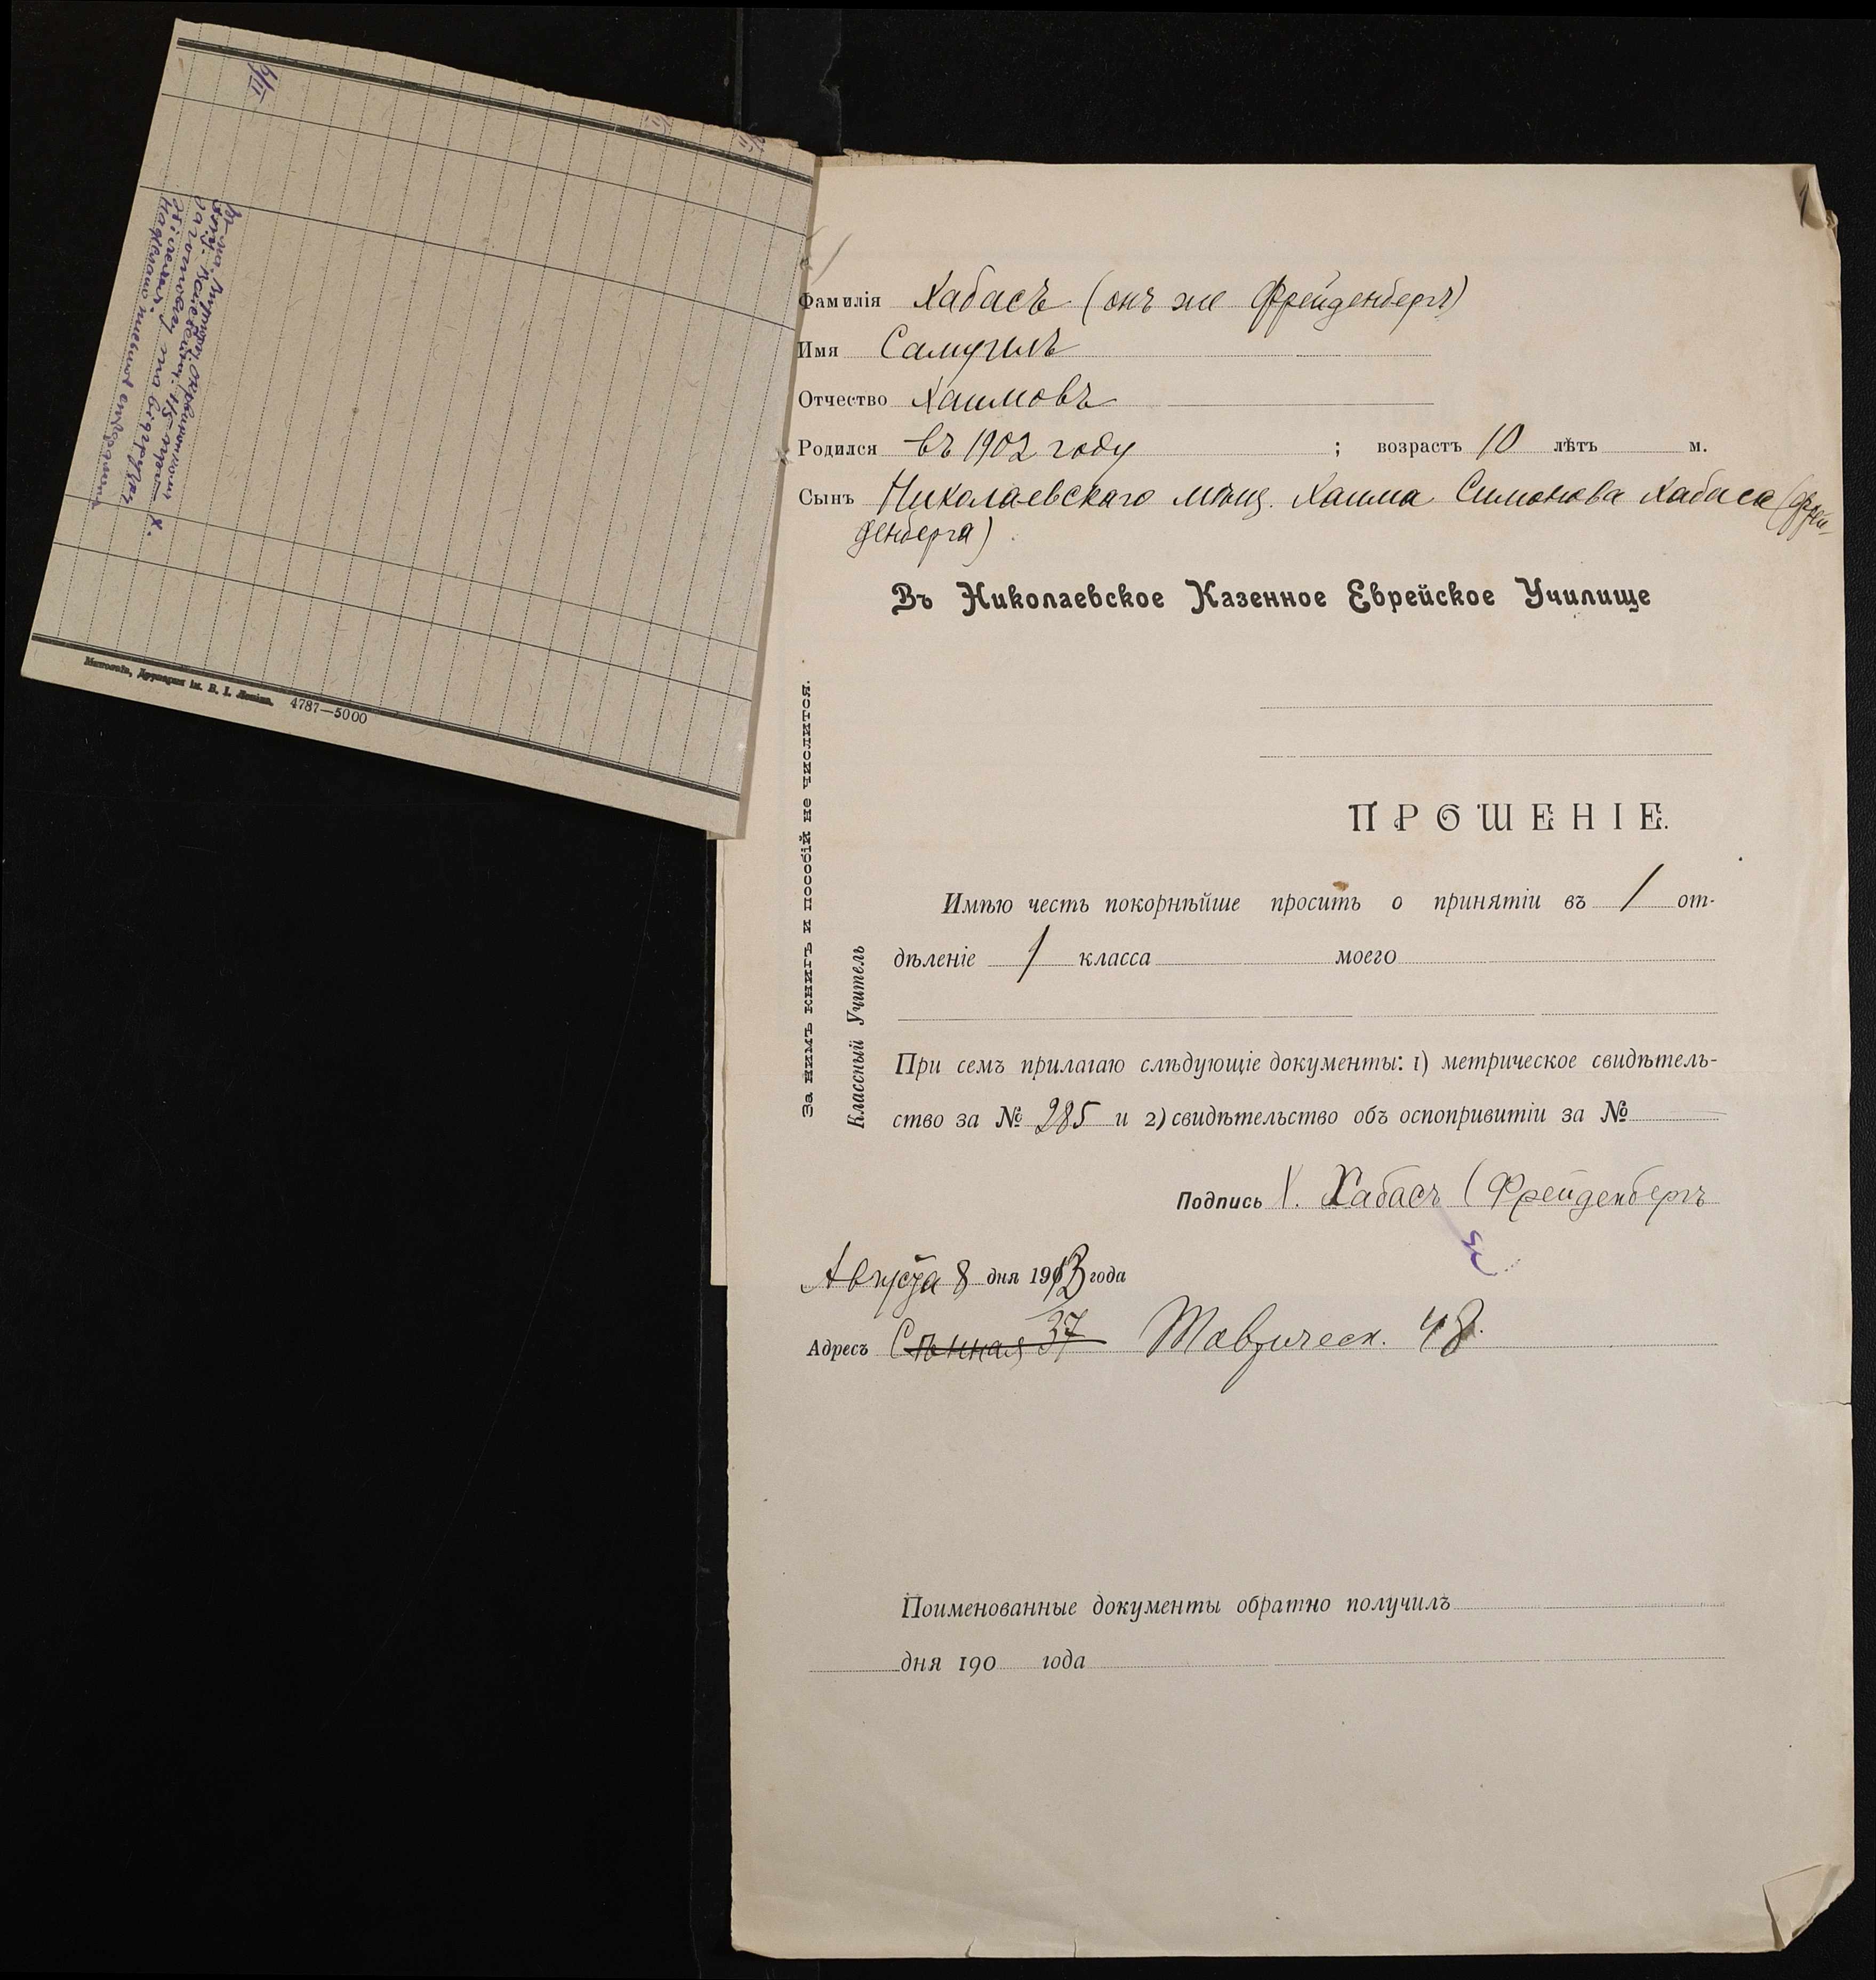 Фамилія Хабасъ (онъ же Фрейденбергъ)
Имя Самуилъ
Отчество Хаимовъ
Родился въ 1902 году ; возрастъ 10 лѣтъ м.
Сынъ Николаевскаго мѣщ. Хаима Симонова Хабаса (Фрей-
денберга)
Въ Николаевское Казенное Еврейское Училище
ПРОШЕНІЕ.
Имѣю честь покорнѣйше просить о принятіи въ 1 от-
дѣленіе 1 класса моего
При семъ прилагаю слѣдующіе документы: 1) метрическое свидѣтель-
ство за № 285 и 2) свидѣтельство объ оспопривитіи за №
Подпись Х. Хабасъ (Фрейденбергъ
Августа 8 дня 1913 года
Адресъ Сѣнная 37 Таврическ. 48.
Поименованные документы обратно получилъ
дня 190 года
За нимъ книгъ и пособій не числится.
Классный Учитель
Миколаїв, Друкарня ім. В. І. Леніна. 4787—5000